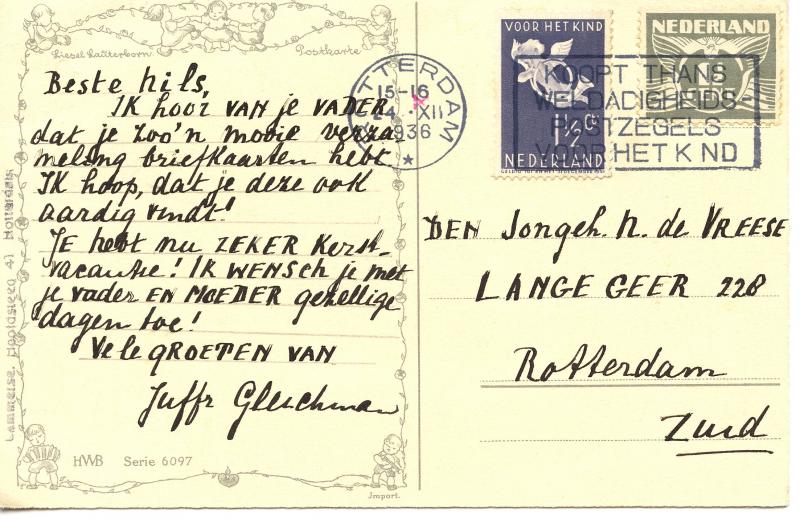 Liesel Lauterborn
Postkarte
Beste Nils,
Ik hoor van je VADER,
dat je zoo'n mooie verza
meling briefkaarten hebt.
Ik hoop, dat je deze ook
aardig vindt!
JE hebt nu ZEKER Kerst-
vacantie! IK WENSCH je met
je vader EN MOEDER gezellige
dagen toe!
Vele GROETEN VAN
Juffr
HWB Serie 6097
Import.
ROTTERDAM
15-16
24 XII
1936
VOOR HET KIND
1½ ct
NEDERLAND
NEDERLAND
KOOPT THANS
WELDADIGHEIDS-
POSTZEGELS
VOOR HET K ND
DEN Jongeh. N. de VREESE
LANGE GEER 228
Rotterdam
Zuid
41 Rotterdam